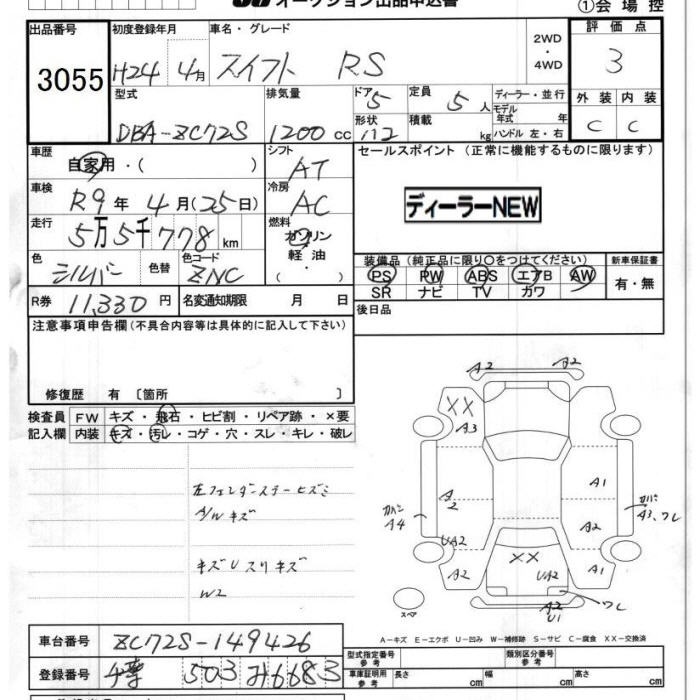 オークション出品申込書
①会場控
出品番号
3055
初度登録年月
H24 4月
車名・グレード
スイフト RS
2WD
・
4WD
評価点
3
型式
DBA-ZC72S
排気量
1200 cc
ドア 5
形状 HB
定員 5人
積載 kg
ディーラー・並行
モデル年式 年
ハンドル 左・右
外装 内装
C C
車歴
自家用・( )
シフト
AT
セールスポイント (正常に機能するものに限ります)
ディーラーNEW
車検
R9年 4月(25日)
冷房
AC
走行
5万5千778km
燃料
ガソリン
軽油
( )
色
シルバー
色替
色コード
ZNC
装備品 (純正品に限り○をつけてください)
PS PW ABS エアB AW
SR ナビ TV カワ
新車保証書
有・無
R券 11,330円
名変通知期限 月 日
後日品
注意事項申告欄 (不具合内容等は具体的に記入して下さい)
修復歴 有 〔箇所 〕
検査員
記入欄
FW キズ・飛石・ヒビ割・リペア跡・×要
内装 キズ・汚レ・コゲ・穴・スレ・キレ・破レ
左フェンダーステーヒズミ
A/W キズ
キズUスリキズ
W2
A2 A2
XX
A3
A1
A2
カバー A4
カバー A3、ワレ
A2
UA2
A2
XX
UA2
A1
ワレ
A2
U1
スペア
A-キズ E-エクボ U-凹み W-補修跡 S-サビ C-腐食 XX-交換済
車台番号 ZC72S-149426
登録番号 503 み6683
型式指定番号 参考
類別区分番号 参考
車庫証明用 参考 長さ cm 幅 cm 高さ cm